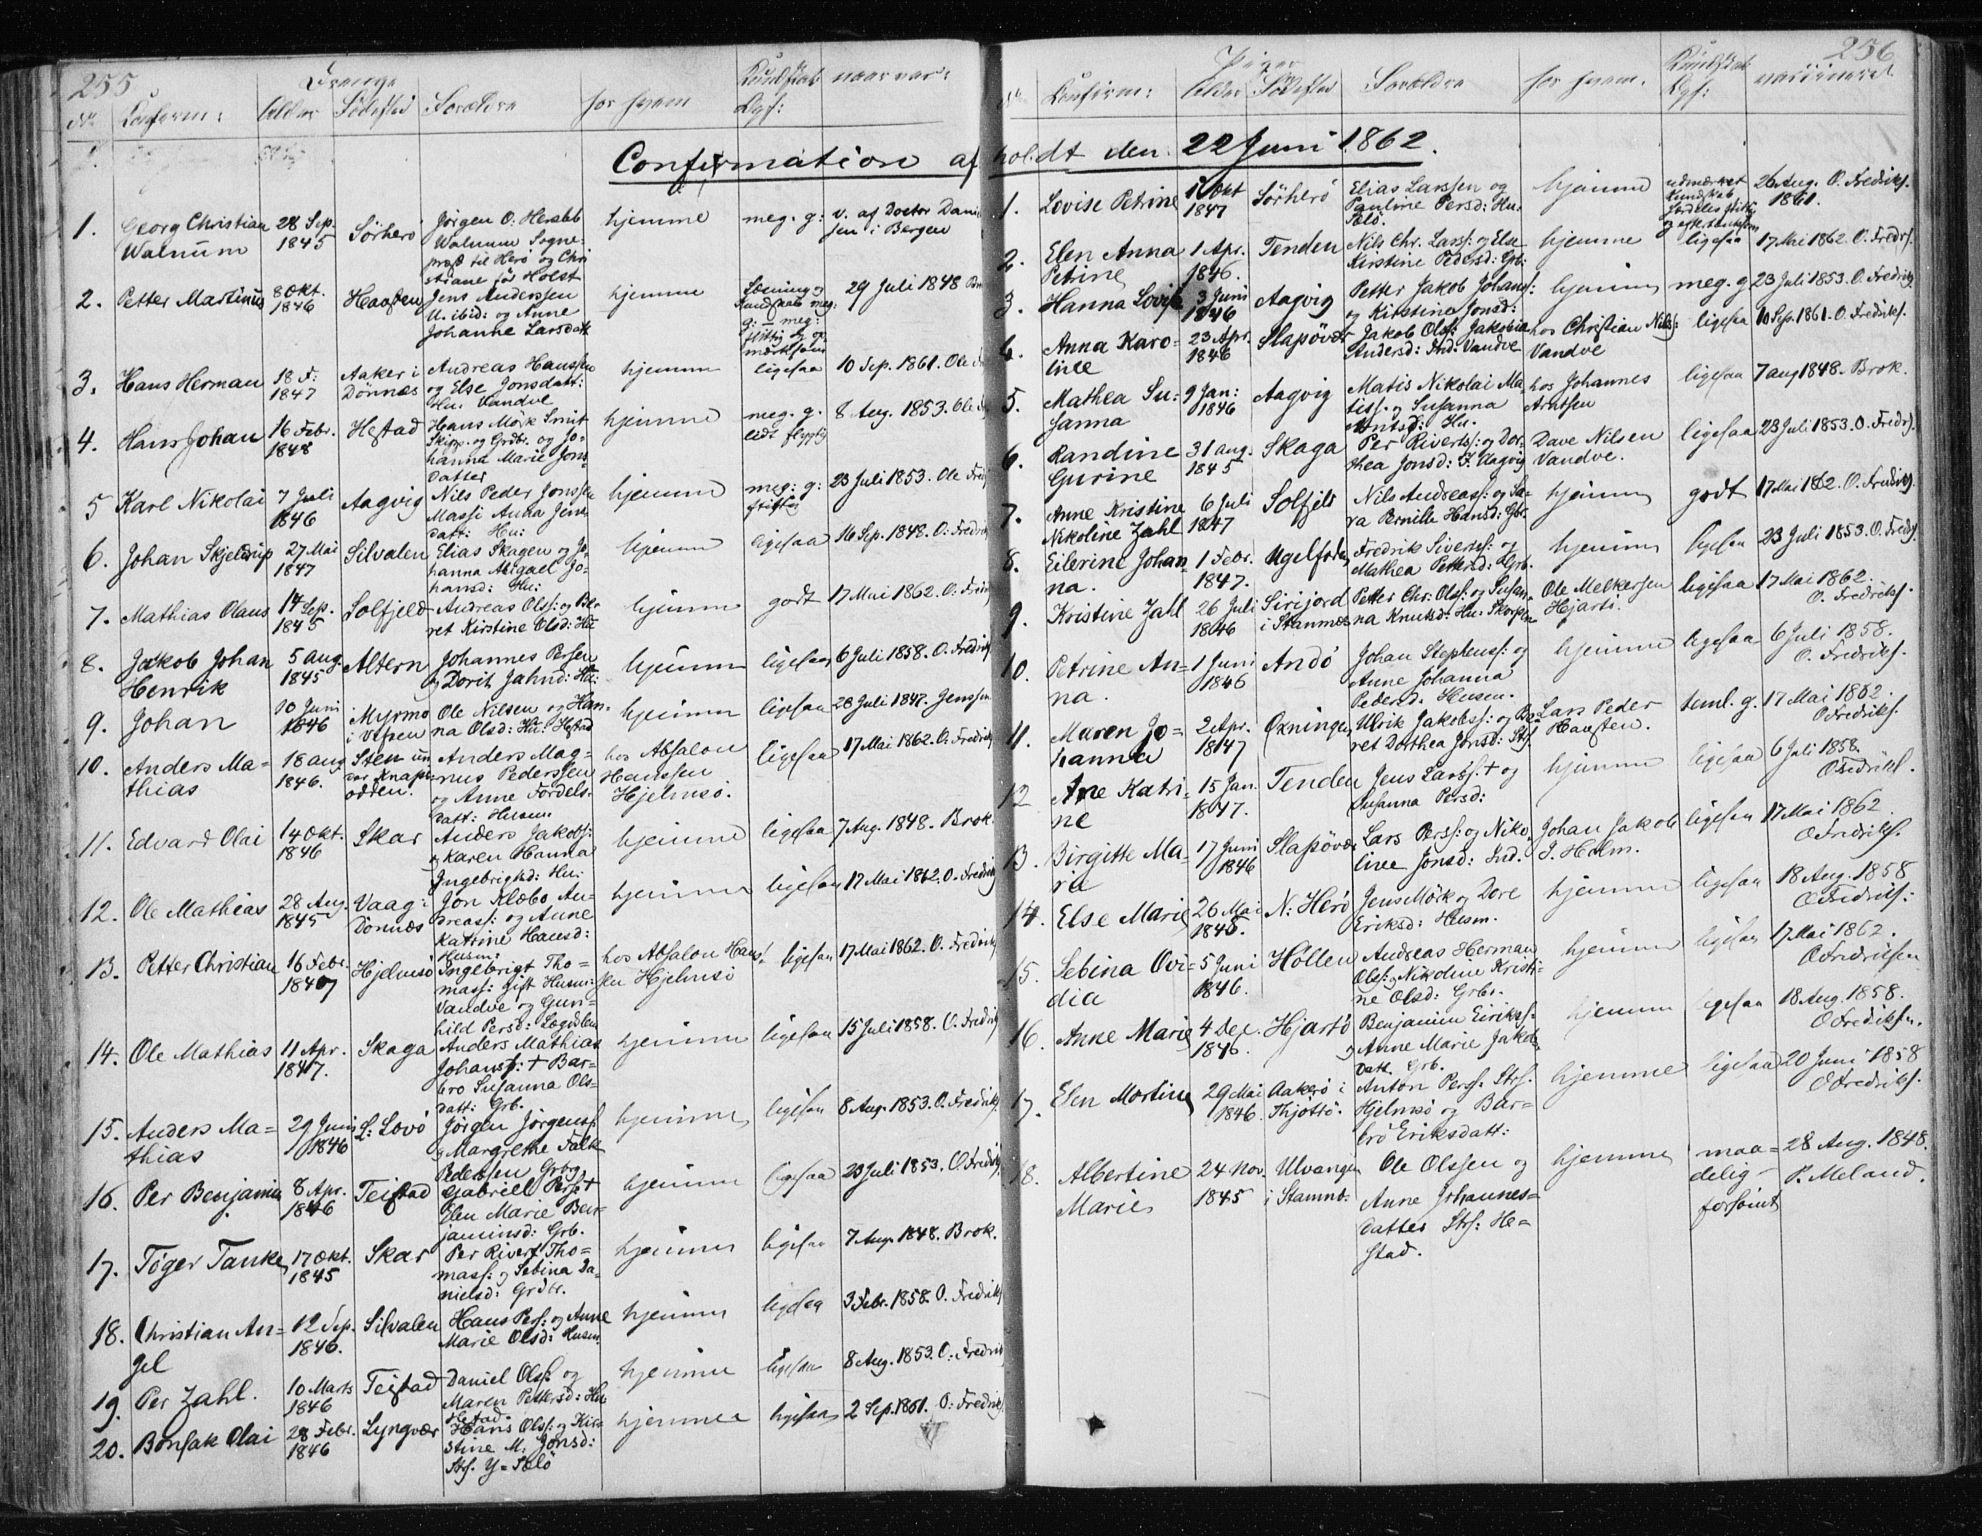 255
Drenge
No Confirm: Alder Födested Forældre for hvem Kundskab Opf: naar vac:
Confirmation af
1. Georg Christian Walnum 28 Sep. 1845 Sörherö Jörgen O. Hersleb Walnum Sogne- præst til Herö og Chri stiane föd Holst hjemme meg. g: v. af Doctor Dani sen i Bergen
2. Petter Martinus 8 Okt. 1846 Haasten Jens Anderssen U. ibid: og Anne Johanne Larsdatt hjemme Læsning og Kundskab meg. g: – meg: flittig og op mærksom 29 Juli 1848
3. Hans Herman 18 F: 1847 Aaker i Dönnæs Andreas Hanssen og Else Jonsdatt: Hu: Vandve hjemme ligesaa 10 Sep. 1861. Ole
4. Hans Johan 16 Febr. 1848 Hestad Hans Mörk Smit Skipp. og Grdbr. og Jo- hanna Marie Jons- datter hjemme meg. g. lidt flygtig 8 Aug. 1853. Ole
5 Karl Nikolai 7 Juli 1846 Aagvig Nils Peder Jonssen Massi Anna Jens datt: Hu: hjemme meg: g: flittig 23 Juli 1853. Ole
6. Johan Skjeldrup 27 Mai 1847 Silvalen Elias Skagen og Jo- hanna Abigael Jo- hansd: Hu: hjemme ligesaa 16 Sep. 1848. O: Fredrik
7. Mathias Olaus 14 Sep. 1845 Solfjeld Andreas Ols: og Be- ret Kirstine Olsd: Hu hjemme godt 17 Mai 1862. O: Fredrik
8. Jakob Johan Henrik 5 aug. 1845 Altern Johannes Persen og Dorit Jahnd: Hu: hjemme ligesaa 6 Juli 1858. O. Fredrik
9. Johan 10 Juni 1846 Myrmo i Vefsen Ole Nilsen og Han- na Olsd: Hu: Hestad hjemme ligesaa 28 Juli 1847. Jenssen
10. Anders Ma- thias 18 aug 1846. Sten un der Knaph odden. Anders Mag- nus Pederssen og Anne Fordels- datt: Husm hos Absalon Hanssen Hjelmsö. ligesaa 17 Mai 1862. O. Fredrik
11. Edvard Olai 14 Okt. 1846 Skar Anders Jakobs: og Karen Hanna Ingebrigtsd: Hu: hjemme ligesaa 7 Aug. 1848. Brok.
12. Ole Mathias 28 Aug. 1845 Vaag: Dönnæs Jon Klæbo An- dreass: og Anne Katrine Hansd: Husm: hjemme ligesaa 17 Mai 1862. O. Fredrik
13. Petter Christian 16 Febr. 1847 Hjelmsö Ingebrigt Tho- mass: Gift Husm: Vandve og Gun- hild Persd: Lægdslem hos Absalon Hans- sen Hjelmsö ligesaa 17 Mai 1862. O. Fredrik
14. Ole Mathias 11 Apr. 1847. Skaga Anders Mathias Johans: † Bar- bro Susanna Ols- datt: Grb. hjemme ligesaa 15 Juli 1858. O. Fredrik
15. Anders Ma- thias 29 Juni 1846 L: Lovö Jörgen Jörgenss: og Margrethe Falk Pederssen Grbrg hjemme ligesaa 8 Aug. 1853. O. Fredrik.
16. Per Benjamin 8 Apr. 1846 Teistad Gabriell Pers: † Elen Marie Ben- jaminsd: Grb. hjemme ligesaa 23 Juli 1853. O Fredrik
17. Töger Tanke 17 Okt. 1845 Skar Per Rivert Tho- mass: og Sebina Da- nielsd: Grdbr. hjemme ligesaa 7 Aug. 1848. Brok.
18. Christian An- gel 12 Sep. 1846. Silvalen Hans Pers: og Anne Marie Olsd: Husm hjemme ligesaa 3 Febr. 1858. O. Fredrik
19. Per Zahl. 10 Marts 1846 Teistad Daniel Ols: og Maren Pettersd: Hu: Hestad. hjemme ligesaa 8 Aug. 1853. O: Fredrik
20. Bonsak Olai 28 Febr. 1846 Lyngvær Hans Ols: og Kir- stine M. Jonsd: Strs. Y= Tælö hjemme ligesaa 2 Sep. 1861. O: Fredrik
256
Piger
No Confirm: Alder Födested Forældre for hvem. Kundskab Opf: vaccineret
holdt den 22 Juni 1862.
1. Lovise Petrine 1 Okt 1847 Sörherö Elias Larssen og Pauline Persd: Hu. Tælö. hjemme udmærket Kundskab særdeles flittig og eftertænksom 26 Aug. O. Fredriks. 1861.
2. Elen Anna Petrine 1 Apr. 1846. Tenden Nils Chr. Lars: og Else Kirstine Pedersd: Grb: hjemme ligesaa 17 Mai 1862. O. Fredrs.
3. Hanna Lovise 3 Juni 1846 Aagvig Petter Jakob Johans: og Kirstine Jonsd: hjemme meg. g 23 Juli 1853. O. Fredrik.
4. Anna Karo- line 23 Apr. 1846 Slapövær Jakob Ols: Jakobia Andersd: Ind: Vandve hos Christian Nils: Vandve ligesaa 10 Sep. 1861. O. Fredriks.
5. Mathea Su- sanna 9 Jan: 1846 Aagvig Matis Nikolai Ma- tiss: og Susanna Arntsd: Hu. hos Johannes Arntsen ligesaa 7 aug 1848. Brok.
6. Randine Gurine 31 aug. 1845 Skaga Per Riverts: og Dor- thea Jonsd: I. Aagvig Dave Nilsen Vandve. ligesaa 23 Juli 1853. O. Fredrs.
7. Anne Kristine Nikoline Zahl 6 Juli 1847 Solfjeld Nils Andreass: og Sa- ra Pernille Hansd: Gbr. hjemme godt 17 Mai 1862. O. Fredrik.
8. Eilerine Johan- na. 1 Febr. 1847. Ugelfoden Fredrik Siverts: og Mathea Pettersd: Grb. hjemme ligesaa 23 Juli 1853. O. Fredrs.
9. Kristine Zahl 26 Juli 1846 Sirijord i Stamnes Petter Chr. Ols: og Susan- na Knutsd: Hu. Skorpen Ole Melkersen Hjartö. ligesaa 17 Mai 1862. O. Fredriks.
10. Petrine An- na. 1 Juni 1846 Andö Johan Stephens: og Anne Johanna Pedersd. Husm. hjemme ligesaa 6 Juli 1858. O. Fredriks.
11. Maren Jo- hanna 2 Apr. 1847 Oxningen Ulrik Jakobs: og Be- ret Dorthea Jonsd: Strs. Lars Peder Haasten. teml. g. 17 Mai 1862. O Fredriks.
12 Ane Katri- ne 15 Jan. 1847. Tenden Jens Lars: † og Susanna Persd: hjemme ligesaa 6 Juli 1858. O Fredriks.
13. Birgitte Ma- ria 17 Juni 1846 Slapövær Lars Pers: og Niko- line Jonsd: Ind. Johan Jakob J. Holm. ligesaa 17 Mai 1862. O Fredriks.
14. Else Marie 26 Mai 1845. N: Herö Jens Mörk og Dore Eriksd: Husm. hjemme ligesaa 18 Aug. 1858 O Fredriks:
15. Sebina Ovi- dia 5 Juni 1846. Hollen Andreas Herman Ols: og Nikoline Kristi- ne Olsd: Grbr. hjemme ligesaa 17 Mai 1862. O Fredriksen
16. Anne Marie 4 Dec. 1846. Hjartö Benjamin Eirikss: og Anne Marie Jakob datt. Grb. hjemme ligesaa 18 Aug. 1858. O Fredriksen.
17. Elen Martine 29 Mai 1846. Aakerö i Thjötrö. Anton Pers: Strs. Hjelmsö og Bar- brö Eriksdatt: hjemme ligesaa 20 Juni 1858 O Fredriks.
18. Albertine Marie 24 Nov. 1845 Ulvangen i Stamnö: Ole Olssen og Anne Johannes- datter Strs: He- stad. hjemme maa- delig – forsömt 28 Aug. 1848. P. Meland.